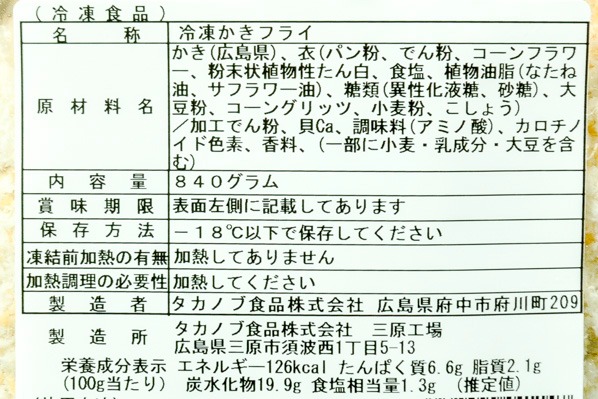 （冷凍食品）
名称 冷凍かきフライ
原材料名 かき（広島県）、衣（パン粉、でん粉、コーンフラワ
ー、粉末状植物性たん白、食塩、植物油脂（なたね
油、サフラワー油）、糖類（異性化液糖、砂糖）、大
豆粉、コーングリッツ、小麦粉、こしょう）
／加工でん粉、貝Ca、調味料（アミノ酸）、カロチノ
イド色素、香料、（一部に小麦・乳成分・大豆を含
む）
内容量 840グラム
賞味期限 表面左側に記載してあります
保存方法 －18℃以下で保存してください
凍結前加熱の有無 加熱してありません
加熱調理の必要性 加熱してください
製造者 タカノブ食品株式会社 広島県府中市府川町209
製造所 タカノブ食品株式会社 三原工場
広島県三原市須波西1丁目5-13
栄養成分表示 エネルギー126kcal たんぱく質6.6g 脂質2.1g
（100g当たり） 炭水化物19.9g 食塩相当量1.3g （推定値）